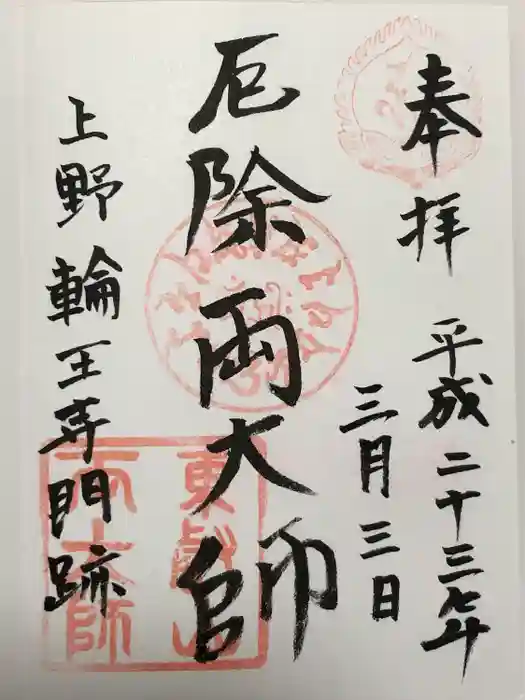 奉拝
平成二十三年
三月三日
厄除両大師
上野輪王寺門跡
東叡山
両大師